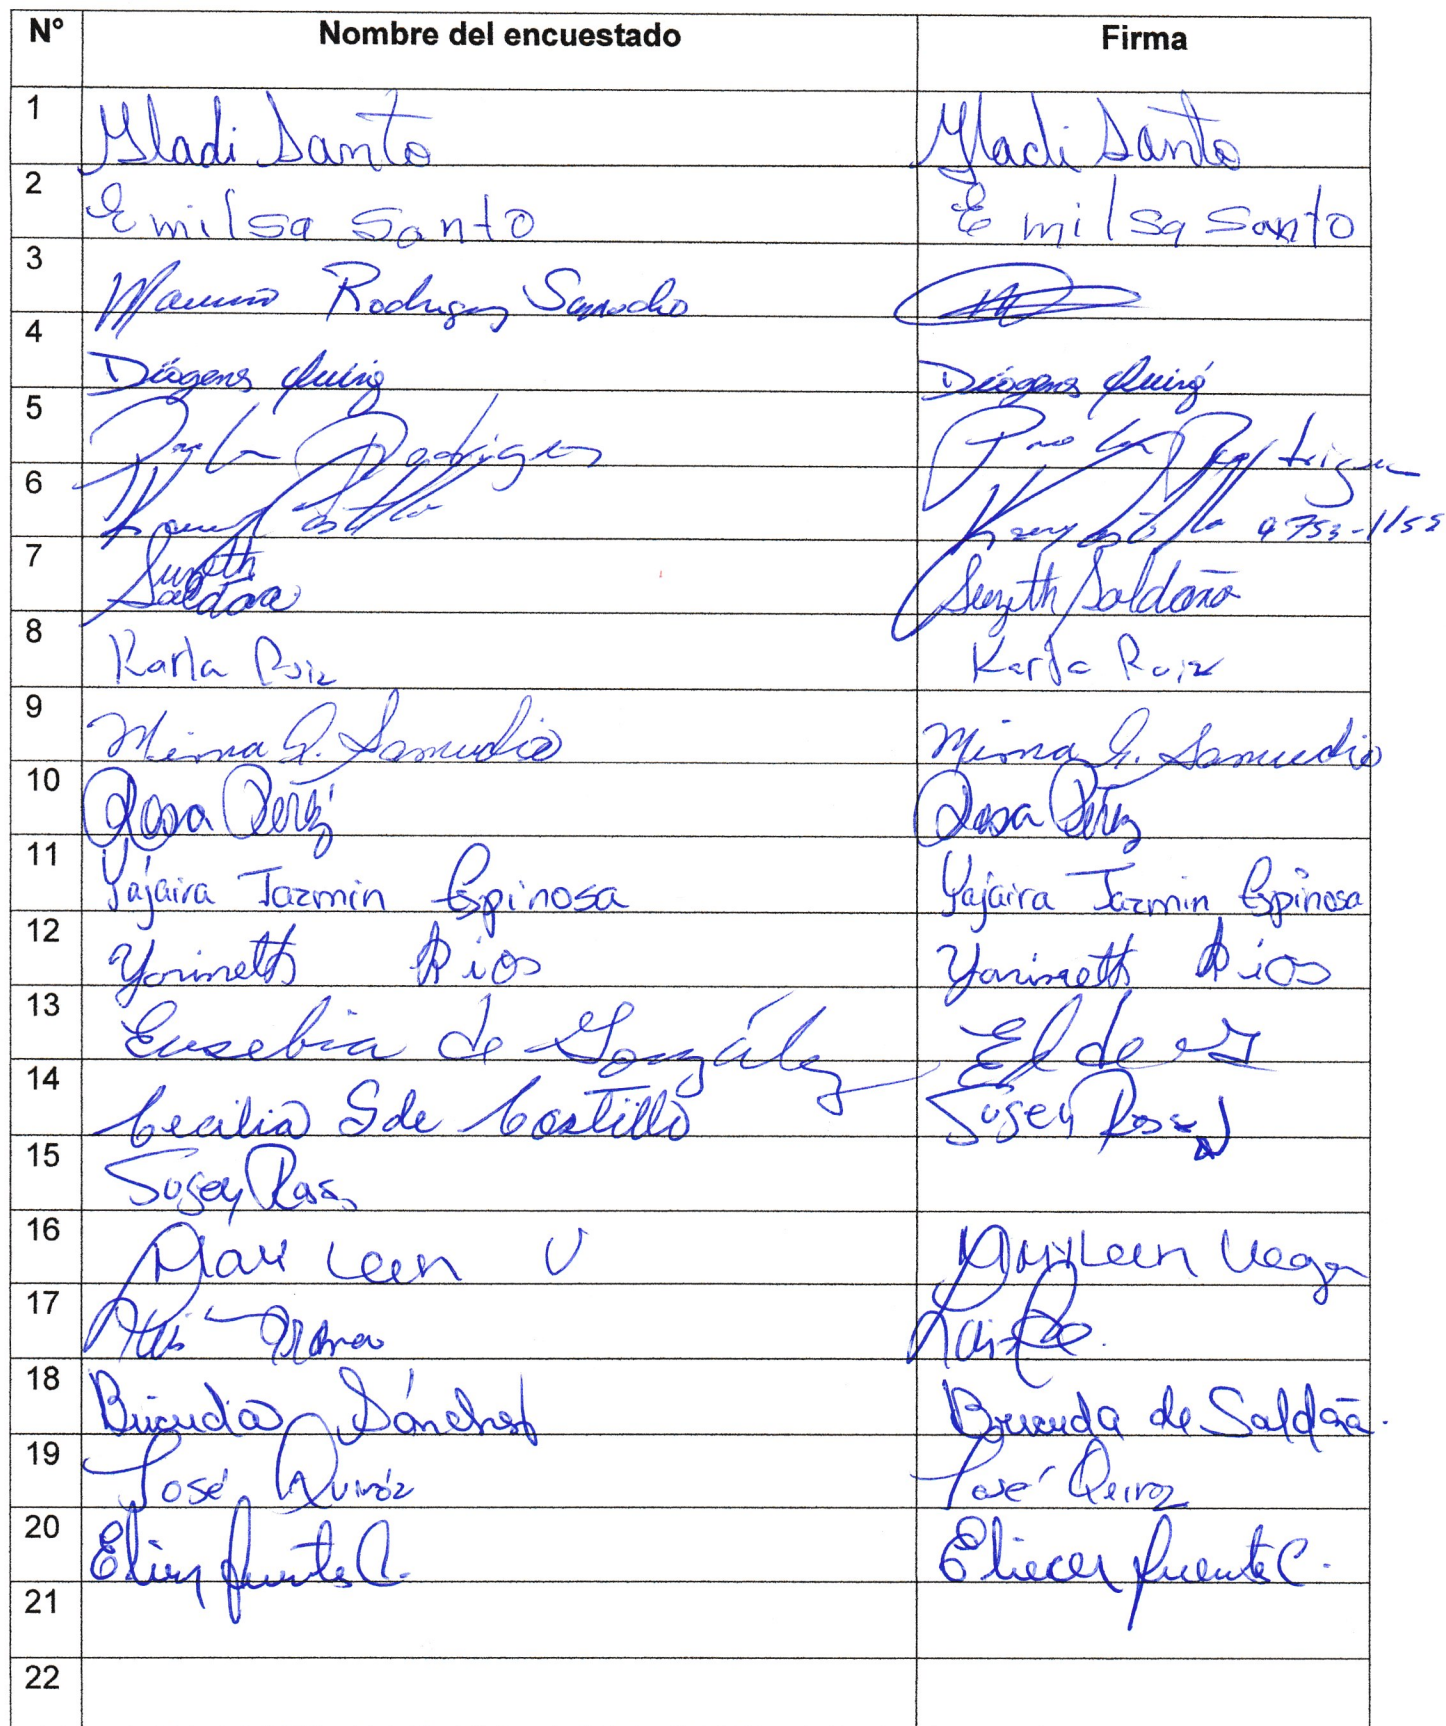 N° Nombre del encuestado Firma
1 Gladi Santo Gladi Santo
2 Emilsa Santo Emilsa Santo
3 Rodriguez Samudio
4 Diogens Quiroz Diogens Quiroz
5 Rodriguez Rodriguez
6 Castillo Castillo
7 Suzeth Saldaña Suzeth Saldaña
8 Karla Ruiz Karla Ruiz
9 Mirna G. Samudio Mirna G. Samudio
10 Rosa Peréz Rosa Pérez
11 Yajaira Jazmin Espinosa Yajaira Jazmin Espinosa
12 Yarineth Rios Yarineth Rios
13 Eusebia de González E de G
14 Cecilia S de Castillo Sugey Rosas
15 Sugey Rosas
16 Marileen V Marileen Vega
17 Luis
18 Sánchez de Saldaña.
19 José Quiróz José Queiroz
20 Eliecer fuente C. Eliecer fuente C.
21
22